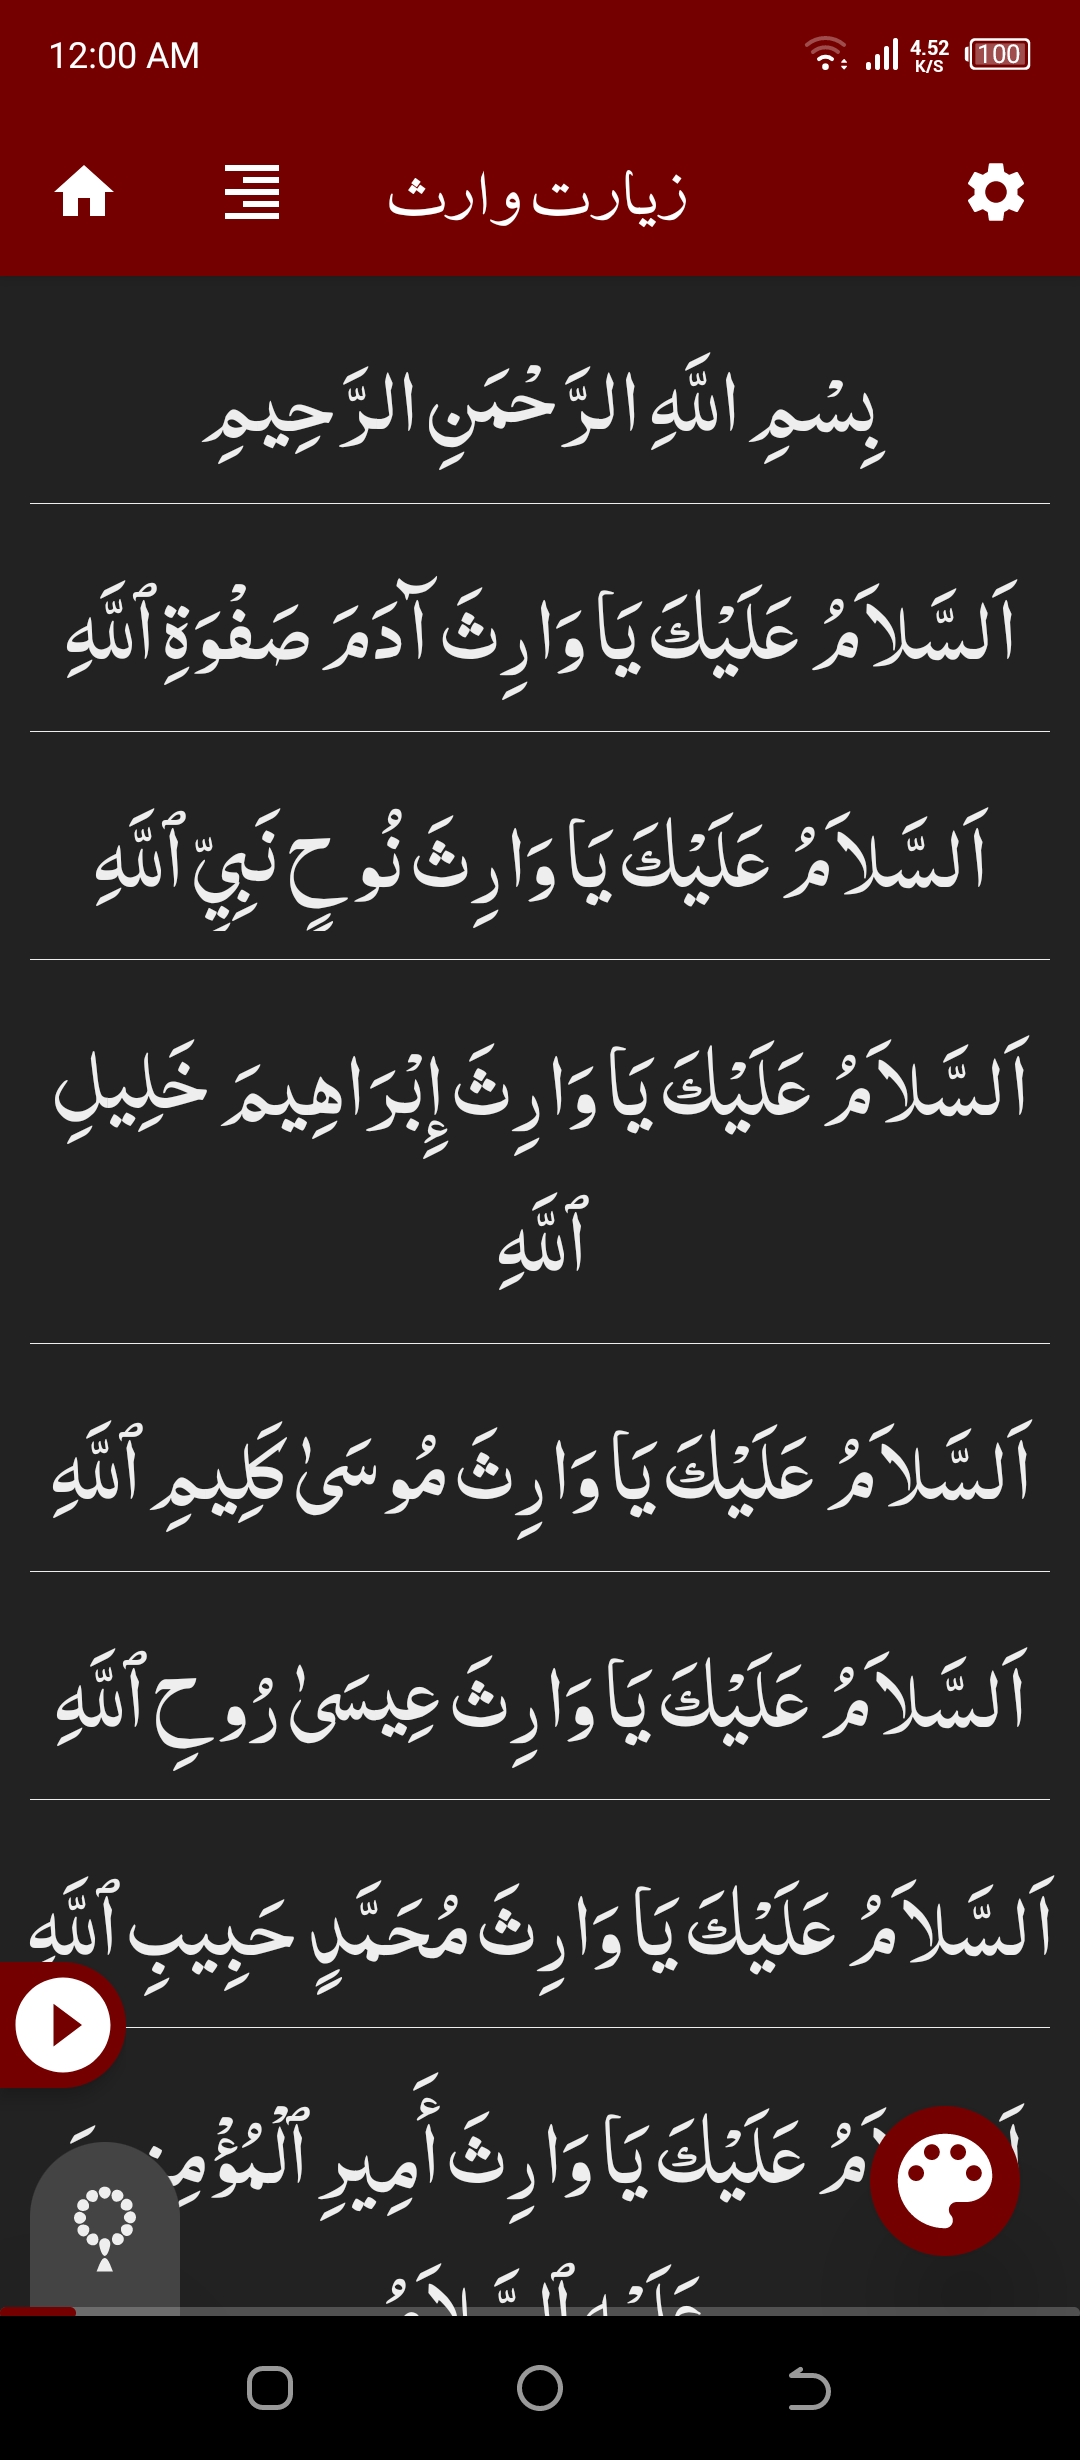 12:00 AM
4.52
K/S
100
زيارت وارث
بِسْمِ اللَّهِ الرَّحْمَنِ الرَّحِيمِ
اَلسَّلاَمُ عَلَيْكَ يَا وَارِثَ آدَمَ صَفْوَةِ ٱللَّهِ
اَلسَّلاَمُ عَلَيْكَ يَا وَارِثَ نُوحٍ نَبِيِّ ٱللَّهِ
اَلسَّلاَمُ عَلَيْكَ يَا وَارِثَ إِبْرَاهِيمَ خَلِيلِ
ٱللَّهِ
اَلسَّلاَمُ عَلَيْكَ يَا وَارِثَ مُوسَىٰ كَلِيمِ ٱللَّهِ
اَلسَّلاَمُ عَلَيْكَ يَا وَارِثَ عِيسَىٰ رُوحِ ٱللَّهِ
اَلسَّلاَمُ عَلَيْكَ يَا وَارِثَ مُحَمَّدٍ حَبِيبِ ٱللَّهِ
عَلَيْكَ يَا وَارِثَ أَمِيرِ
عَلَيْهِ ٱلسَّلاَمُ